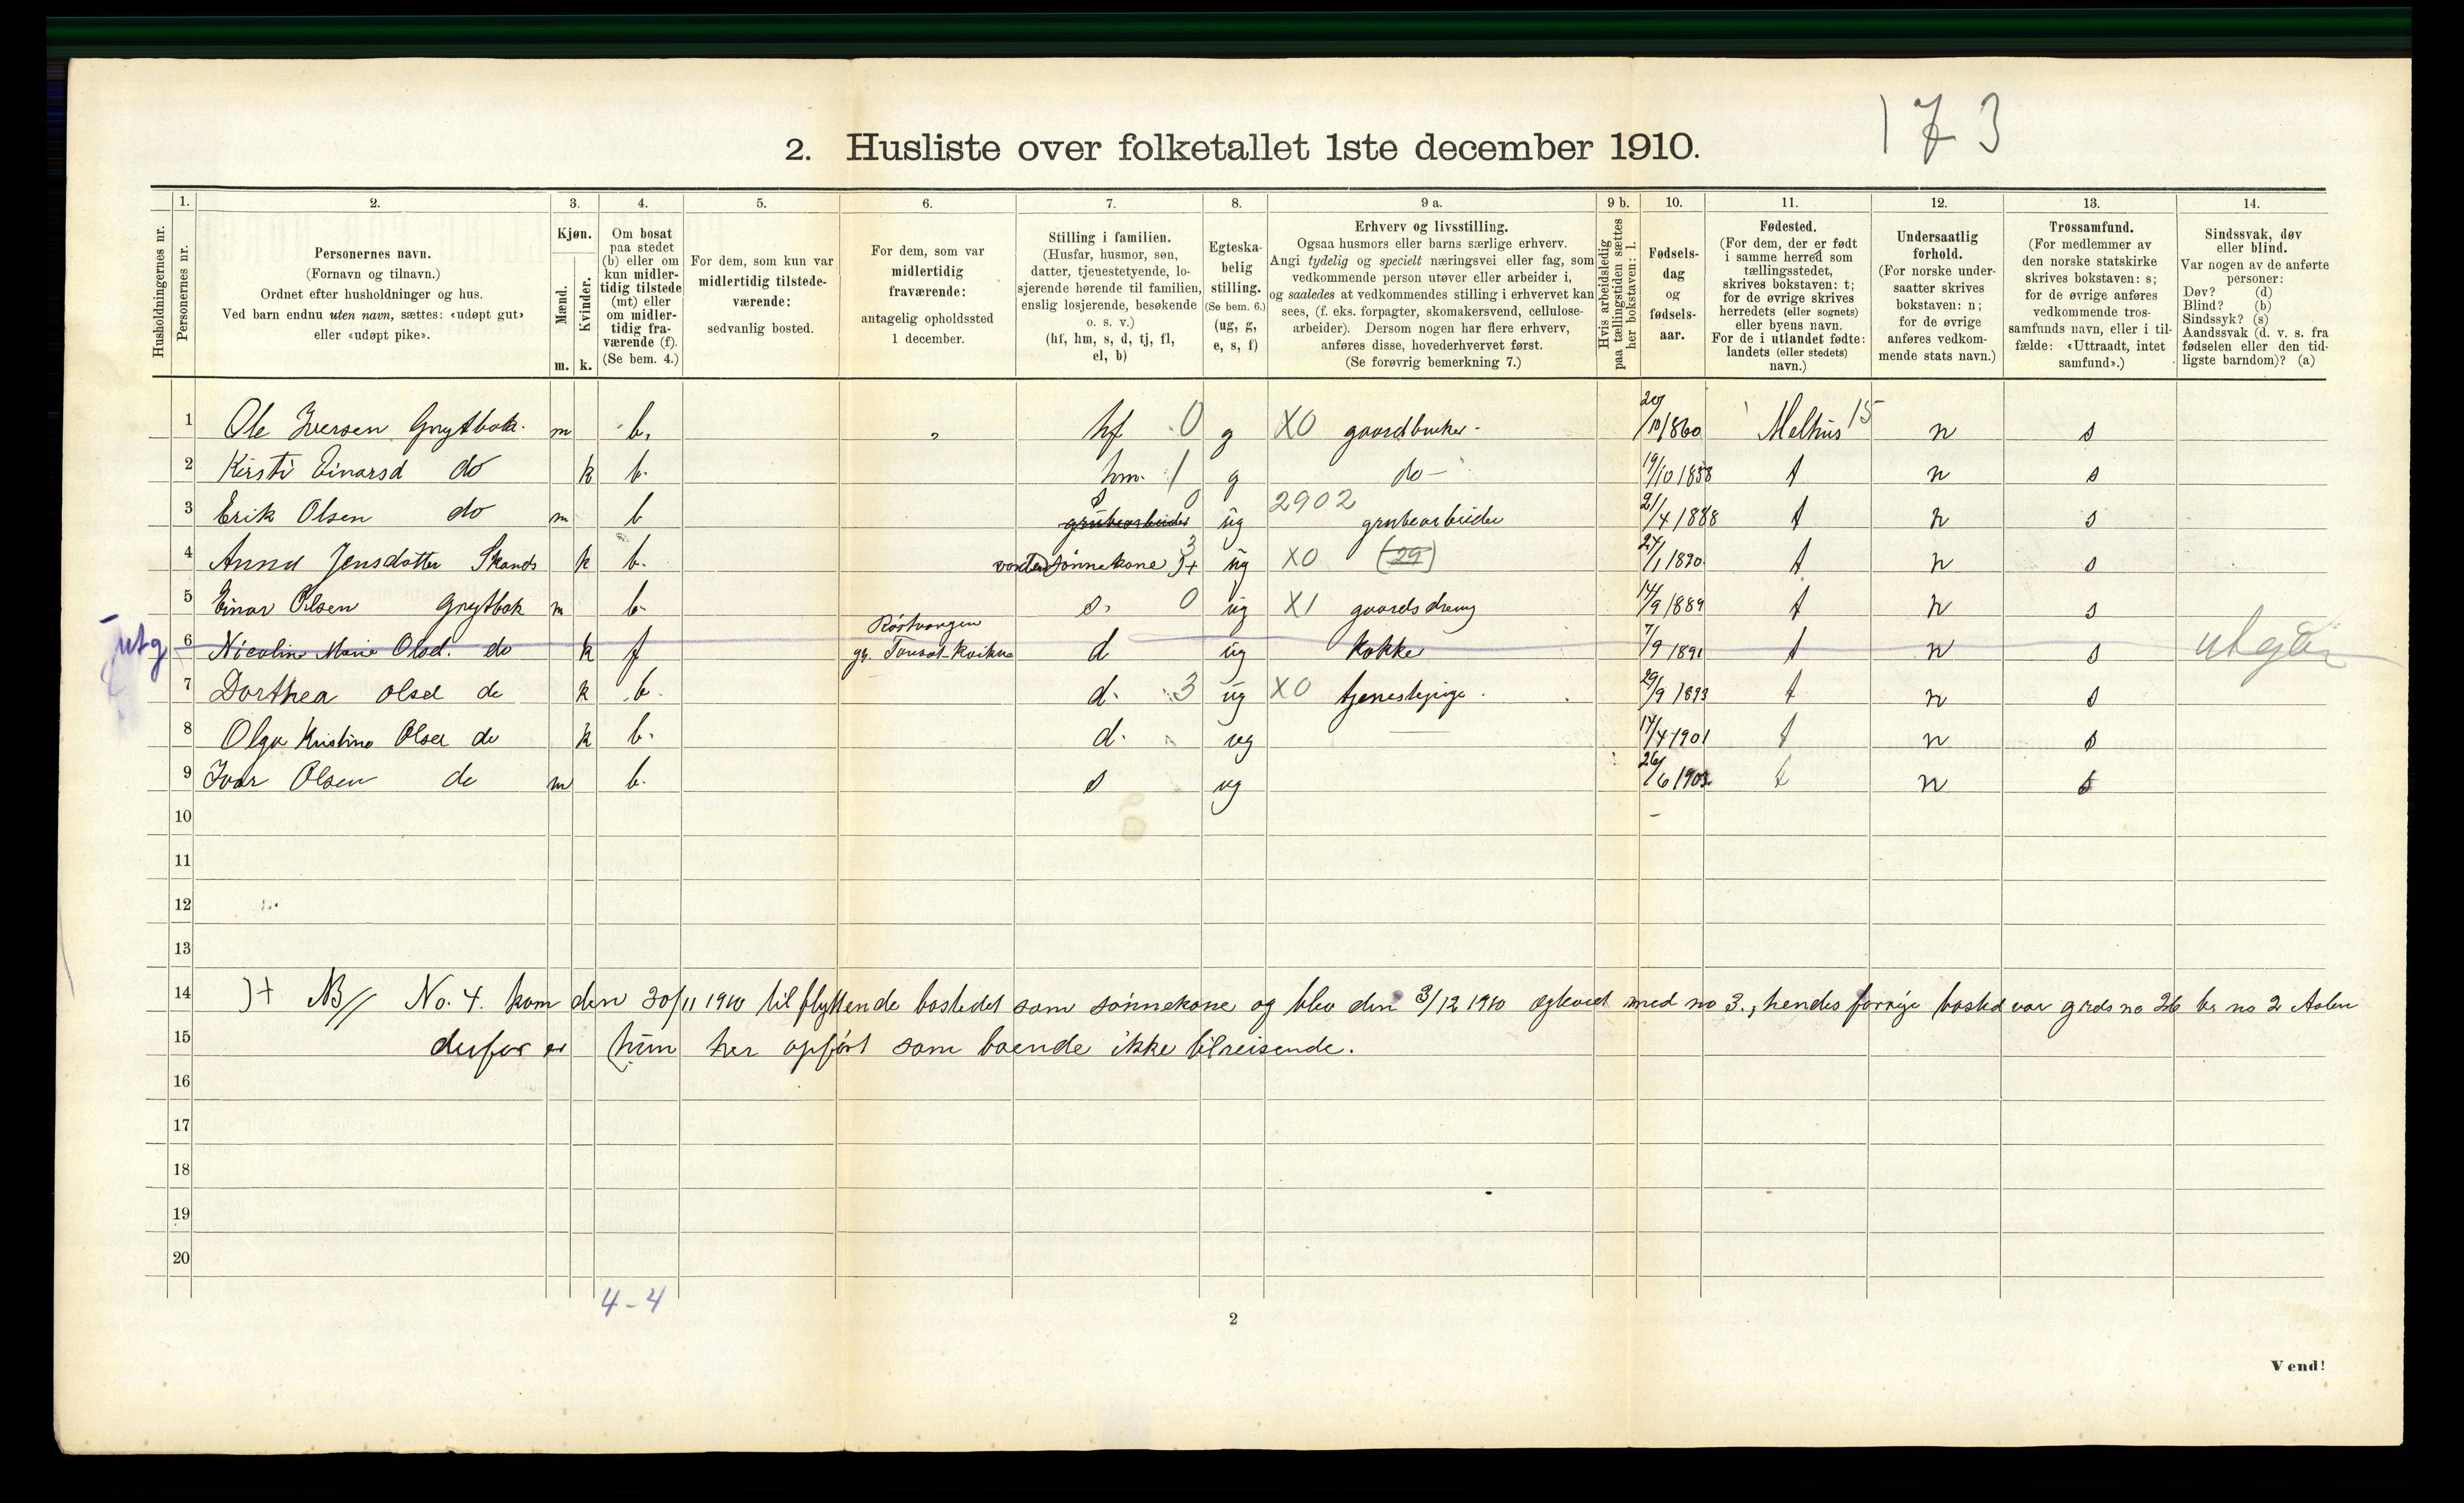 173
2. Husliste over folketallet 1ste december 1910.
Husholdningernes nr.
1.
Personernes nr.
2.
Personernes navn.
(Fornavn og tilnavn.)
Ordnet efter husholdninger og hus.
Ved barn endnu uten navn, sættes: «udøpt gut»
eller «udøpt pike».
3.
Kjøn.
Mænd.
Kvinder.
m. k.
4.
Om bosat
paa stedet
(b) eller om
kun midler-
tidig tilstede
(mt) eller
om midler-
tidig fra-
værende (f).
(Se bem. 4.)
5.
For dem, som kun var
midlertidig tilstede-
værende:
sedvanlig bosted.
6.
For dem, som var
midlertidig
fraværende:
antagelig opholdssted
1 december.
7.
Stilling i familien.
(Husfar, husmor, søn,
datter, tjenestetyende, lo-
sjerende hørende til familien,
enslig losjerende, besøkende
o. s. v.)
(hf, hm, s, d, tj, fl,
el, b)
8.
Egteska-
belig
stilling.
(Se bem. 6.)
(ug, g,
e, s, f)
9 a.
Erhverv og livsstilling.
Ogsaa husmors eller barns særlige erhverv.
Angi tydelig og specielt næringsvei eller fag, som
vedkommende person utøver eller arbeider i,
og saaledes at vedkommendes stilling i erhvervet kan
sees, (f. eks. forpagter, skomakersvend, cellulose-
arbeider). Dersom nogen har flere erhverv,
anføres disse, hovederhvervet først.
(Se forøvrig bemerkning 7.)
9 b.
Hvis arbeidsledig
paa tællingstiden sættes
her bokstaven: l.
10.
Fødsels-
dag
og
fødsels-
aar.
11.
Fødested.
(For dem, der er født
i samme herred som
tællingsstedet,
skrives bokstaven: t;
for de øvrige skrives
herredets (eller sognets)
eller byens navn.
For de i utlandet fødte:
landets (eller stedets)
navn.)
12.
Undersaatlig
forhold.
(For norske under-
saatter skrives
bokstaven: n;
for de øvrige
anføres vedkom-
mende stats navn.)
13.
Trossamfund.
(For medlemmer av
den norske statskirke
skrives bokstaven: s;
for de øvrige anføres
vedkommende tros-
samfunds navn, eller i til-
fælde: «Uttraadt, intet
samfund».)
14.
Sindssvak, døv
eller blind.
Var nogen av de anførte
personer:
Døv? (d)
Blind? (b)
Sindssyk? (s)
Aandssvak (d. v. s. fra
fødselen eller den tid-
ligste barndom)? (a)
1 Ole Iversen Grytbak. m b. " hf 0 g X0 gaardbruker. 20/10 1860 Melhus 15 n s
2 Kirsti Einarsd do k b. hm. 1 g do 19/10 1858 t n s
3 Erik Olsen do m b grubearbeider s 0 ug 2902 grubearbeider 21/4 1888 t n s
4 Anna Jensdatter k b. vorden sønnekone 3 )+ ug X0 (29) 27/1 1890 t n s
5 Einar Olsen Grytbak m b. s. 0 ug X1 gaardsdreng 14/9 1889 t n s
utg 6 Nicoline Marie Olsd. do k f Røstvangen gr. Tønset-Kvikne d ug Kokke 7/9 1891 t n s utgår
7 Dorthea Olsd do k b. d. 3 ug X0 29/9 1893 t n s
8 Olga Kristine Olsd do k b. d. ug 17/4 1901 t n s
9 Ivar Olsen do m b. s ug 26/6 1903 t n s
10
11
12
13
14 )+ NB// No. 4. kom den 30/11 1910 tilflyttende bostedet som sønnekone og blev den 3/12 1910 egteviet med no 3., hendes forrige bosted var grds no 26 br no 2 Aalen
15 derfor er hun her opført som boende ikke tilreisende.
16
17
18
19
20
4-4
2
Vend!